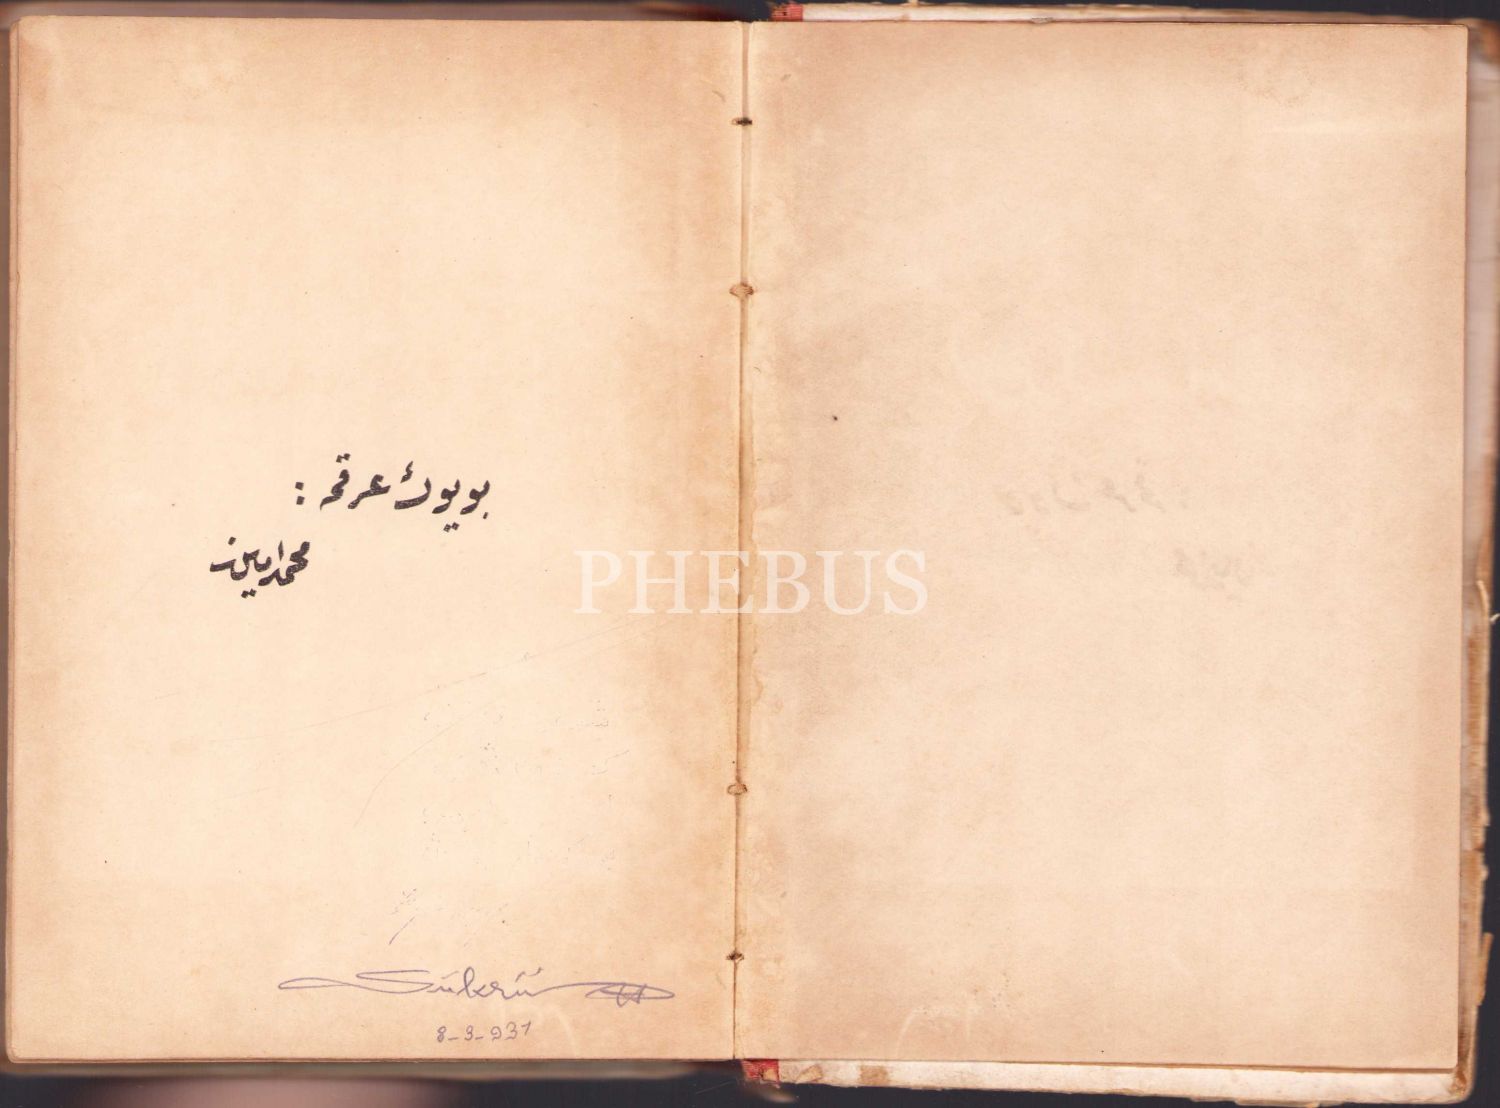 بويوك عرقه :
محمد امين
PHEBUS
Sükrü
8-3-931